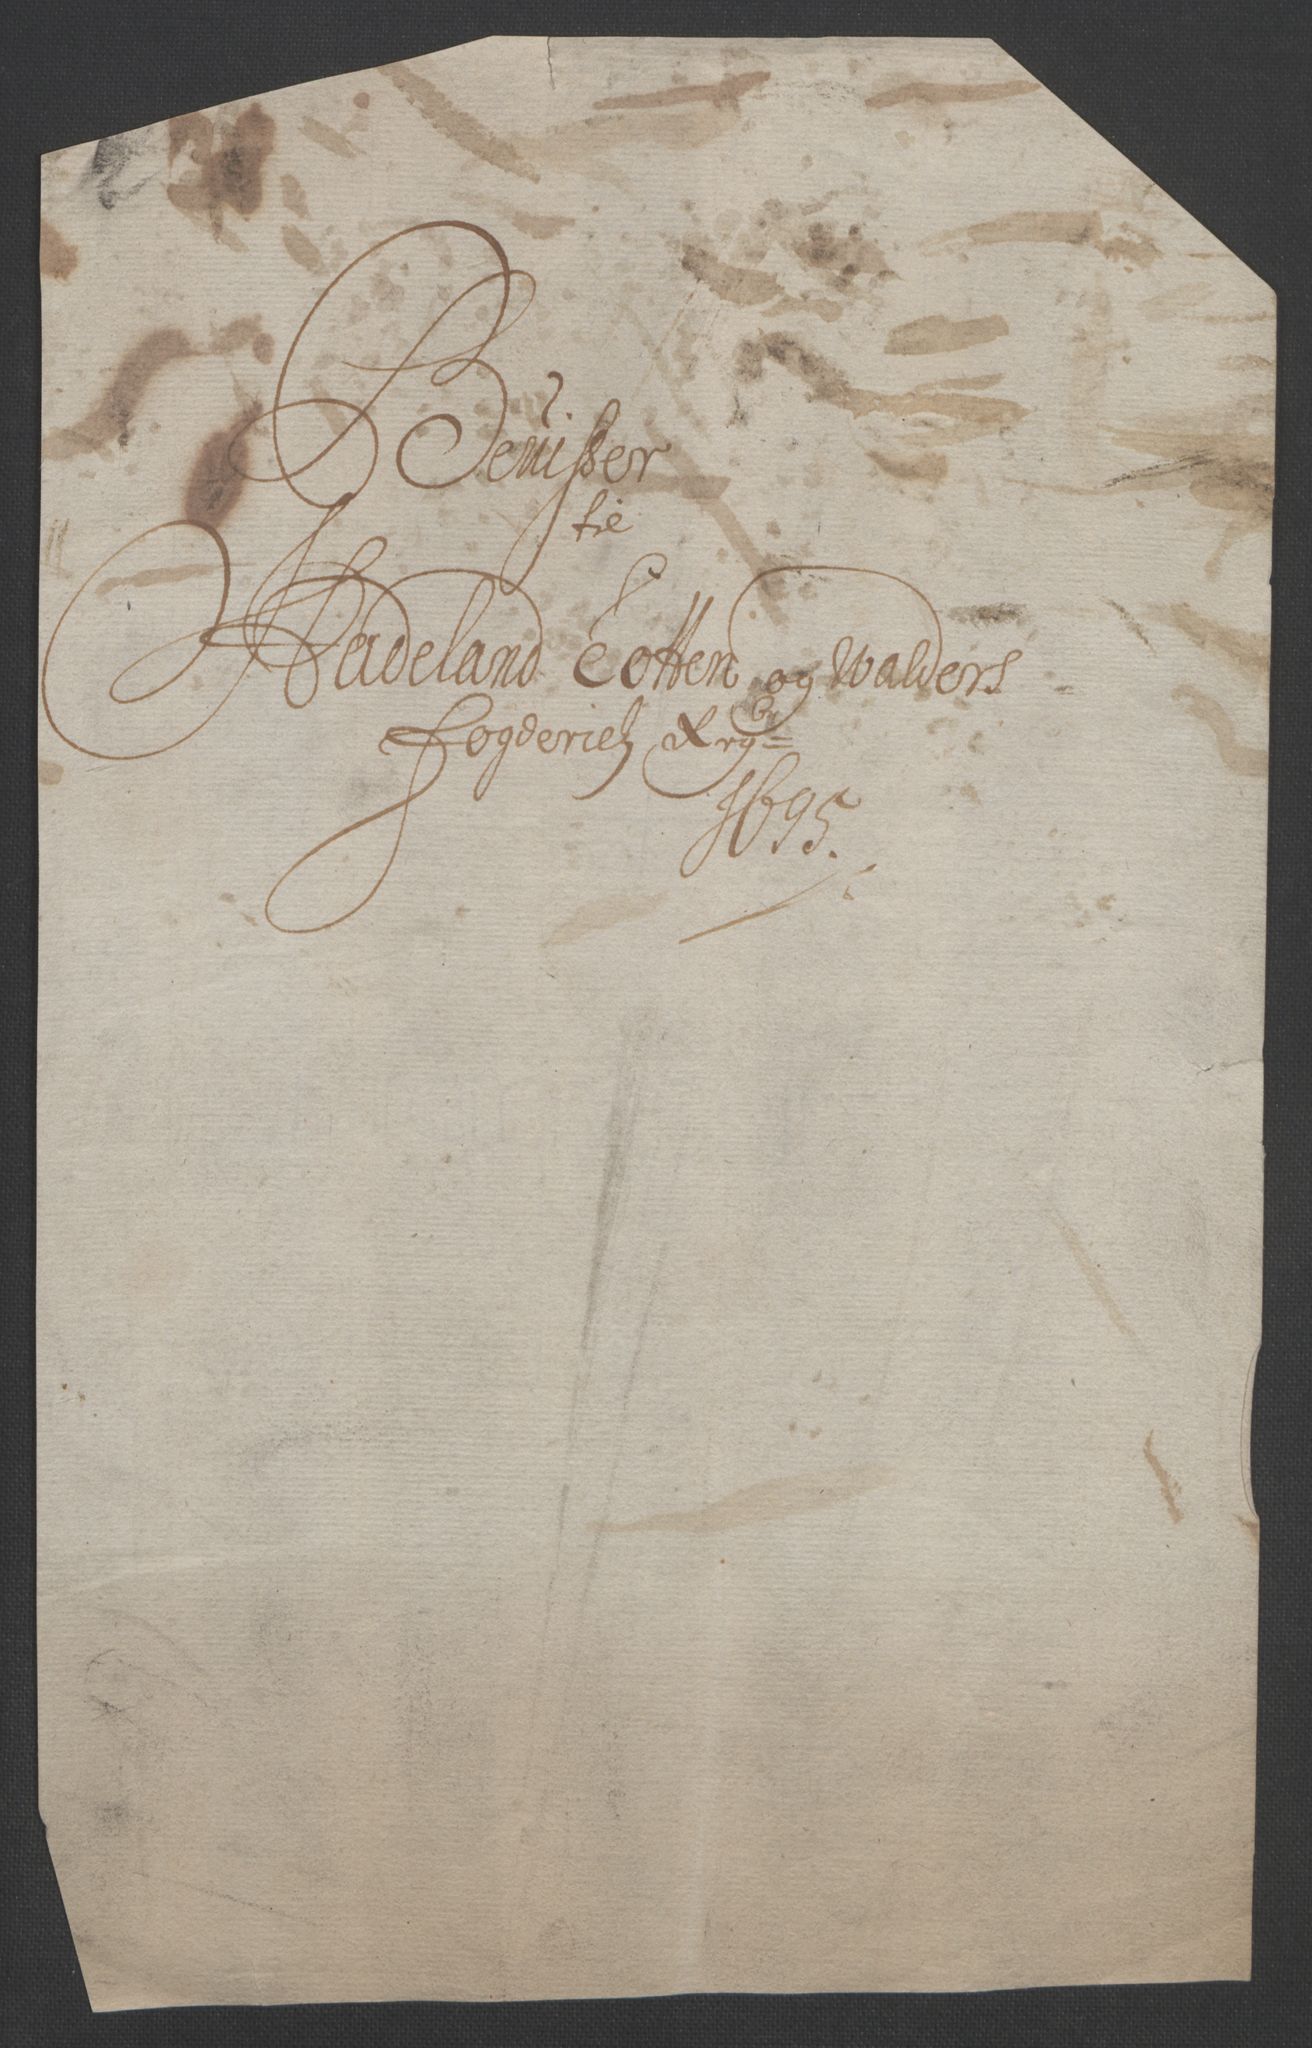 Beviſser
til
Hadeland Totten og Walders
fogderies Rrgbr
1695.